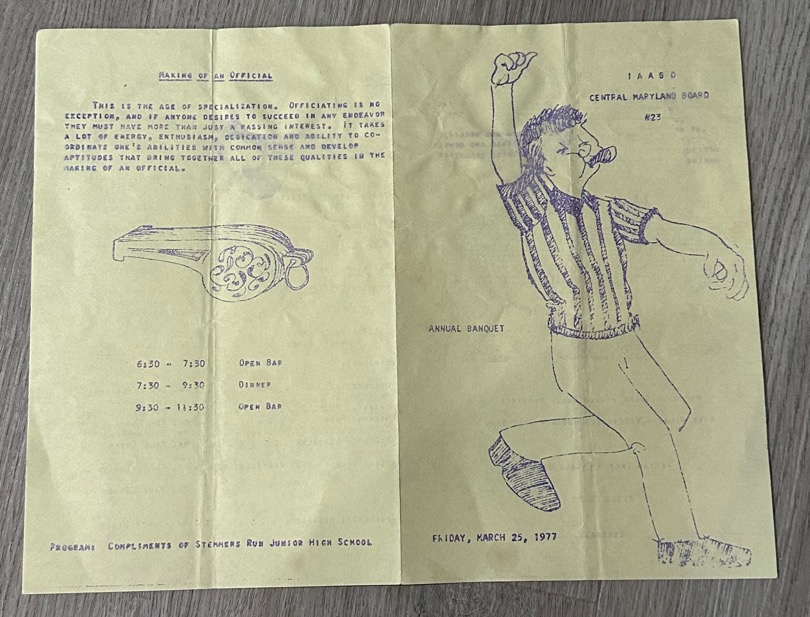 MAKING OF AN OFFICIAL
THIS IS THE AGE OF SPECIALIZATION. OFFICIATING IS NO
EXCEPTION, AND IF ANYONE DESIRES TO SUCCEED IN ANY ENDEAVOR
THEY MUST HAVE MORE THAN JUST A PASSING INTEREST. IT TAKES
A LOT OF ENERGY, ENTHUSIASM, DEDICATION AND ABILITY TO CO-
ORDINATE ONE'S ABILITIES WITH COMMON SENSE AND DEVELOP
APTITUDES THAT BRING TOGETHER ALL OF THESE QUALITIES IN THE
MAKING OF AN OFFICIAL.
6:30 - 7:30 OPEN BAR
7:30 - 9:30 DINNER
9:30 - 11:30 OPEN BAR
PROGRAM: COMPLIMENTS OF STEMMERS RUN JUNIOR HIGH SCHOOL
I A A B O
CENTRAL MARYLAND BOARD
#23
ANNUAL BANQUET
FRIDAY, MARCH 25, 1977